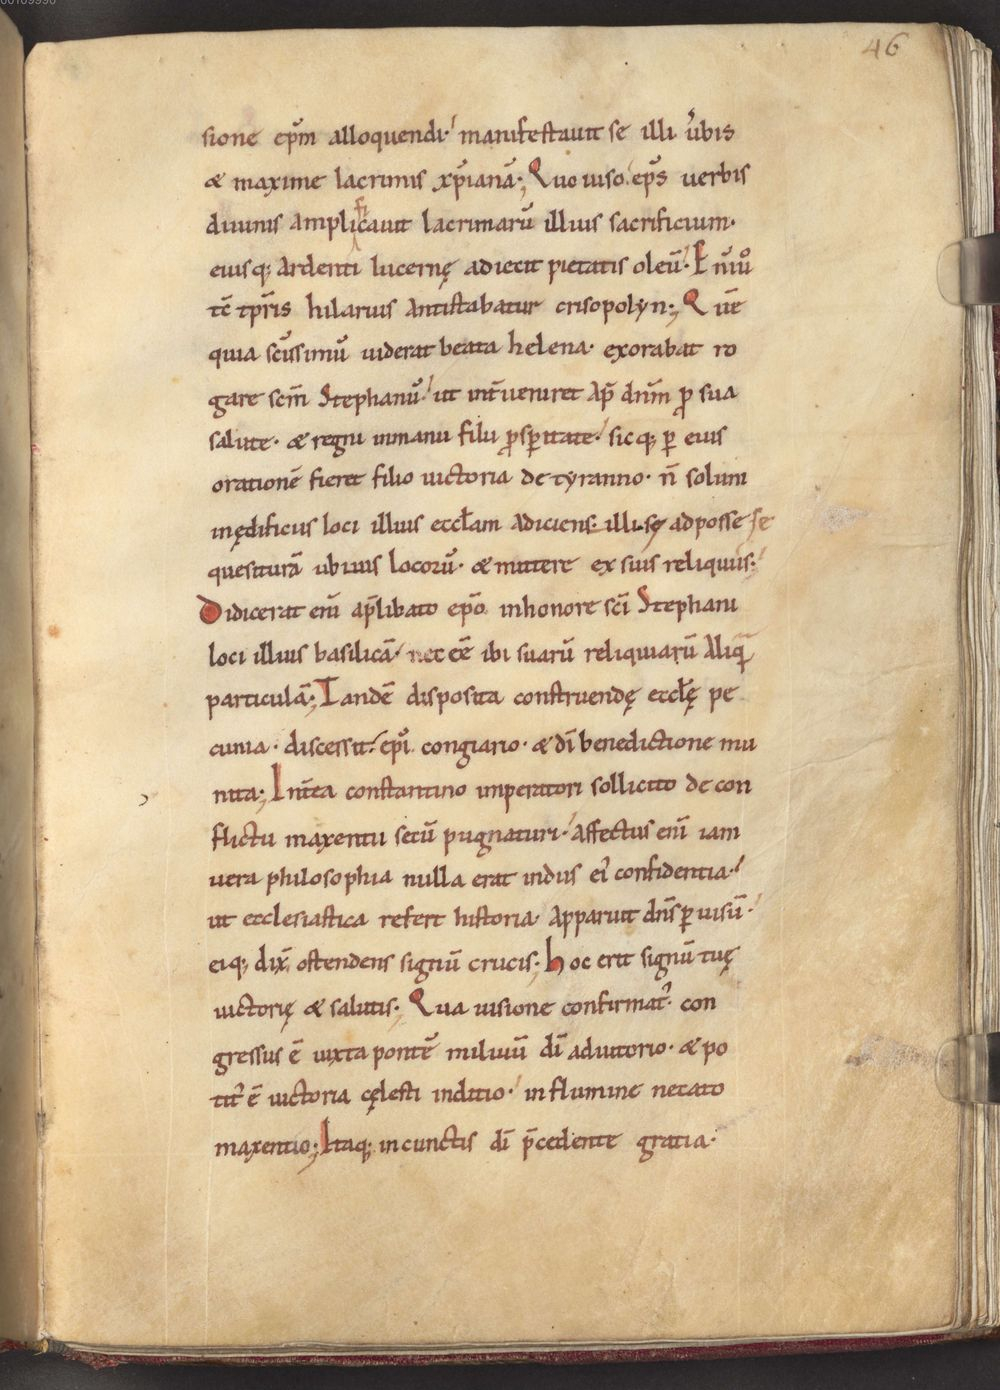 46
sione ep̅m alloquendi· manifestauit se illi u̅bis
& maxime lacrimis xp̅iana̅; Quo uiso ep̅s uerbis
diuinis amplificauit lacrimaru̅ illius sacrificium·
eiusq; ardenti lucernę adiecit pietatis oleu̅·
te̅ tp̅ris hilarius antistabatur crisopolyn; Que̅
quia sc̅issimu̅ uiderat beata helena· exorabat ro
gare sc̅m Stephanu̅· ut int̅ueniret ap̅ dn̅m ꝓ sua
salute· & regni inmanu filii ꝓsꝑitate· sicq; ꝑ eius
oratione̅ fieret filio uictoria de tyranno· n̅ solum
inędificiis loci illius eccl̅am adiciens· illi sę adposse se
quesitura̅ ubiuis locoru̅· & mittere ex suis reliquiis·
Didicerat eni̅ ap̅libato ep̅o inhonore sc̅i Stephani
loci illius basilica̅· nec ee̅ ibi suaru̅ reliquiaru̅ aliqua̅
particula̅; Tande̅ disposita construendę eccl̅ę pe
cunia· discessit· ep̅i congiario· & di̅ benedictione mu
nita; Int̅ea constantino imperatori sollicito de con
flictu maxentii secu̅ pugnaturi· affectus eni̅ iam
uera philosophia nulla erat indiis ei confidentia·
ut ecclesiastica refert historia· apparuit dn̅s ꝑ uisu̅·
eiq; dix̅ ostendens signu̅ crucis; hoc erit signu̅ tuę
uictorię & salutis· Qua uisione confirmat̅· con
gressus e̅ iuxta ponte̅ miluiu̅ di̅ adiutorio· & po
tit̅ e̅ uictoria cęlesti inditio· in flumine necato
maxentio; Itaq; in cunctis di̅ p̅cedente gratia·